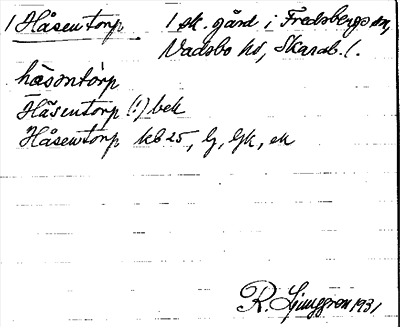 1 Håsentorp 1 sk. gård i Fredsbergs sn,
Vadsbo hd, Skarab. l.
håsəntòrp
Håsentorp (!) bek
Håsentorp kb 25, G, Gk, ek
R. Ljunggren 1931